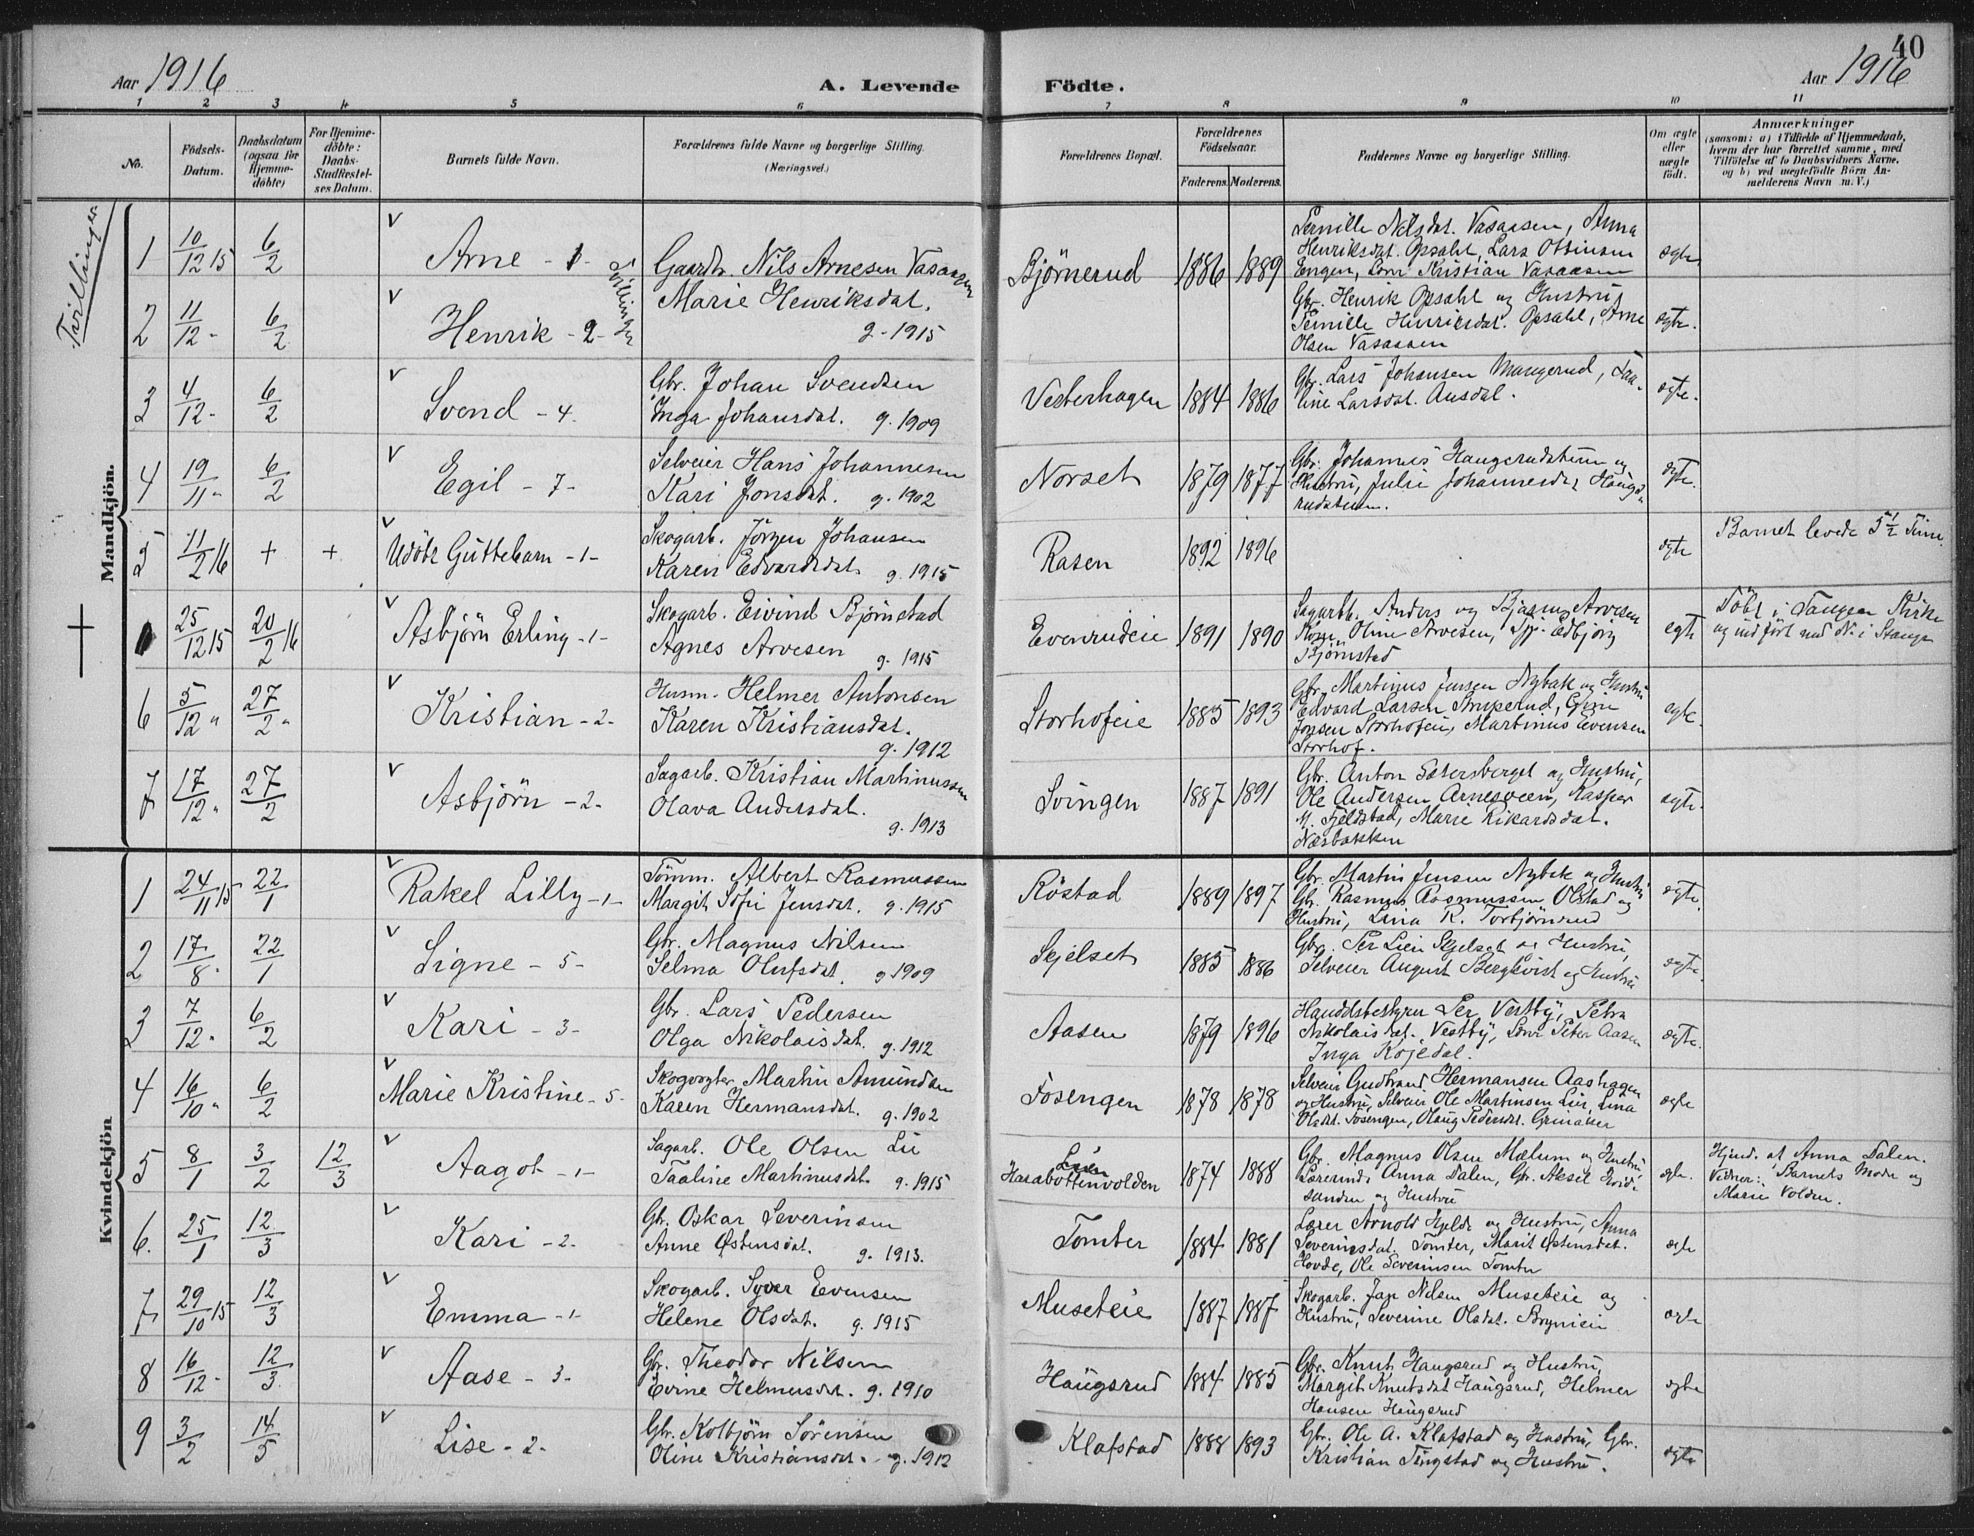 40
Aar 1916
A. Levende
Födte.
Aar 1916
1 2 3 4 5 6 7 8 9 10 11
No.
Födsels-
Datum.
Daabsdatum
(ogsaa for
Hjemme-
döbte)
For Hjemme-
döbte:
Daabs-
Stadfæstel-
ses Datum.
Barnets fulde Navn.
Forældrenes fulde Navne og borgerlige Stilling.
(Næringsvei.)
Forældrenes Bopæl.
Forældrenes
Födselsaar.
Faderens. Moderens.
Faddernes Navne og borgerlige Stilling.
Om ægte
eller
uægte
födt.
Anmærkninger
(saasom: a) i Tilfælde af Hjemmedaab,
hvem der har forrettet samme, med
Tilföielse af to Daabsvidners Navne,
og b) ved uægtefödte Börn An-
melderens Navn m. V.)
Tvillinger
Mandkjön.
1 10/12 15 6/2 Arne - 1 -
Tvillinger
Gaardbr. Nils Arnesen Vasaasen
Marie Henriksdat.
g. 1915
Bjørnerud 1886 1889
Pernille Nilsdat. Vasaasen, Anna
Henriksdat. Opsahl, Lars Ottinsen
Engen, Lorn Kristian Vasaasen
egte
2 11/12 - 6/2 Henrik - 2 -
Gbr. Henrik Opsahl og Hustru
Pernille Henriksdat. Opsahl, Arne
Olsen Vasaasen
egte.
3 4/12 - 6/2 Svend - 4.
Gbr. Johan Svendsen
Inga Johansdat. g. 1909
Vesterhagen 1884 1886
Gbr. Lars Johansen Mangerud, Taa-
line Larsdat. Ausdal.
egte.
4 19/11 - 6/2 Egil - 7 -
Selveier Hans Johannesen
Kari Jonsdat. g. 1902
Norset 1879 1877
Gbr. Johannes Haugerudstuen og
Hustru, Julie Johannesdat. Hauge-
rudstuen.
egte.
5 11/2 16 + + Udöbt Guttebarn - 1 -
Skogarb. Jörgen Johansen
Karen Edvardsdat. g. 1915
Rasen 1892 1896
egte
Barnet levede 5 1/2 Time.
25/12 15 20/2 16 Asbjörn Erling - 1 -
Skogarb. Eivind Bjørnstad
Agnes Arvesen g. 1915
Evenrudeie 1891 1890
Sagarb. Anders og Bjarne Arvesen
Kone Oline Arvesen, Pp. Edbjørg
Bjørnstad
egte
Döbt i Tangen Kirke
og indfört med No. i Stange
6 5/12 " 27/2 " Kristian - 2 -
Husm. Helmer Antonsen
Karen Kristiansdat.
g. 1912
Storhofeie 1885 1893
Gbr. Martinus Jensen Nybak og Hustru
Edvard Larsen Stuperud, Gine
Jonsen Storhofeie, Martinus Evensen
Storhof.
egte.
7 17/12 " 27/2 Asbjörn - 2 -
Sagarb. Kristian Martinussen
Olava Andersdat.
g. 1913
Svingen 1887 1891
Gbr. Anton Sætersberget og Hustru,
Ole Andersen Arnesveen, Kasper
M. Fjeldstad, Marie Rikardsdat.
Næsbakken
egte.
Kvindekjön
1 24/11 15 22/1 Rakel Lilly - 1 -
Tömm. Albert Rasmussen
Margit Sofie Jensdat. g. 1915
Röstad 1889 1897
Gbr. Martin Jensen Nybak og Hustru
Gbr. Rasmus Rasmussen Olstad og
Hustru, Lina R. Torbjörnsrud
egte.
2 17/8 - 22/1 Signe - 5 -
Gbr. Magnus Nilsen
Selma Olufsdat. g 1909
Skjelset 1885 1886
Gbr. Per Lien Skjelset og Hustru,
Selveier August Bergkvist og Hustru
egte.
3 7/12 - 6/2 Kari - 3 -
Gbr. Lars Pedersen
Olga Nikolaisdat. g. 1912
Aasen 1879 1896
Handelsbestyrer Per Vestby, Petra
Nikolaisdat. Vestby, Lovr. Peter Aasen
Inga Kojedal.
egte.
4 16/10 " 6/2 Marie Kristine - 5 -
Skogvogter Martin Amundsen
Karen Hermansdat. g. 1902
Fosengen 1878 1878
Selveier Gudbrand Hermansen Aashagen
og Hustru, Selveier Ole Martinsen Lier, Lina
Olsdt. Fosengen, Olaug Pedersdt. Grinaker
egte
5 8/1 3/2 12/3 Aagot - 1 -
Sagarb. Ole Olsen Lie
Taaline Martinusdat. g. 1915
Lien
Harabottenvolden 1874 1888
Gbr. Magnus Olsen Mælum og Hustru
Lærerinde Anna Dalen, Gbr. Aksel Kvide
sanden og Hustru
egte.
Hjmd. af Anna Dalen.
Vidner: Barnets Moder og
Marie Volden.
6. 25/1 12/3 Kari - 2 -
Gbr. Oskar Severinsen
Anne Østensdat. g. 1913.
Tomter 1884 1881
Lærer Arnold Hjelde og Hustru, Anna
Severinsdat. Tomter, Marit Østensdat.
Hovde, Ole Severinsen Tomter
egte
7 29/10 15 12/3 Emma - 1 -
Skogarb. Syver Evensen
Helene Olsdat. g. 1915
Museteie 1887 1887
Skogarb. Jap Nilsen Museteie og
Hustru, Severine Olsdat. Brynieie
egte
8 16/12 - 12/3 Aase - 3 -
Gbr. Theodor Nilsen
Evine Helmersdat. g. 1910
Haugsrud 1884 1885
Gbr. Knut Haugsrud og Hustru,
Margit Knutsdat Haugsrud, Helmer
Hansen Haugsrud
egte
9 3/2 14/5 Lise - 2 -
Gbr. Kolbjörn Sörensen
Oline Kristiansdat. - g. 1912
Klafstad 1888 1893
Gbr. Ole A. Klafstad og Hustru, Gbr.
Kristian Tingstad og Hustru.
egte